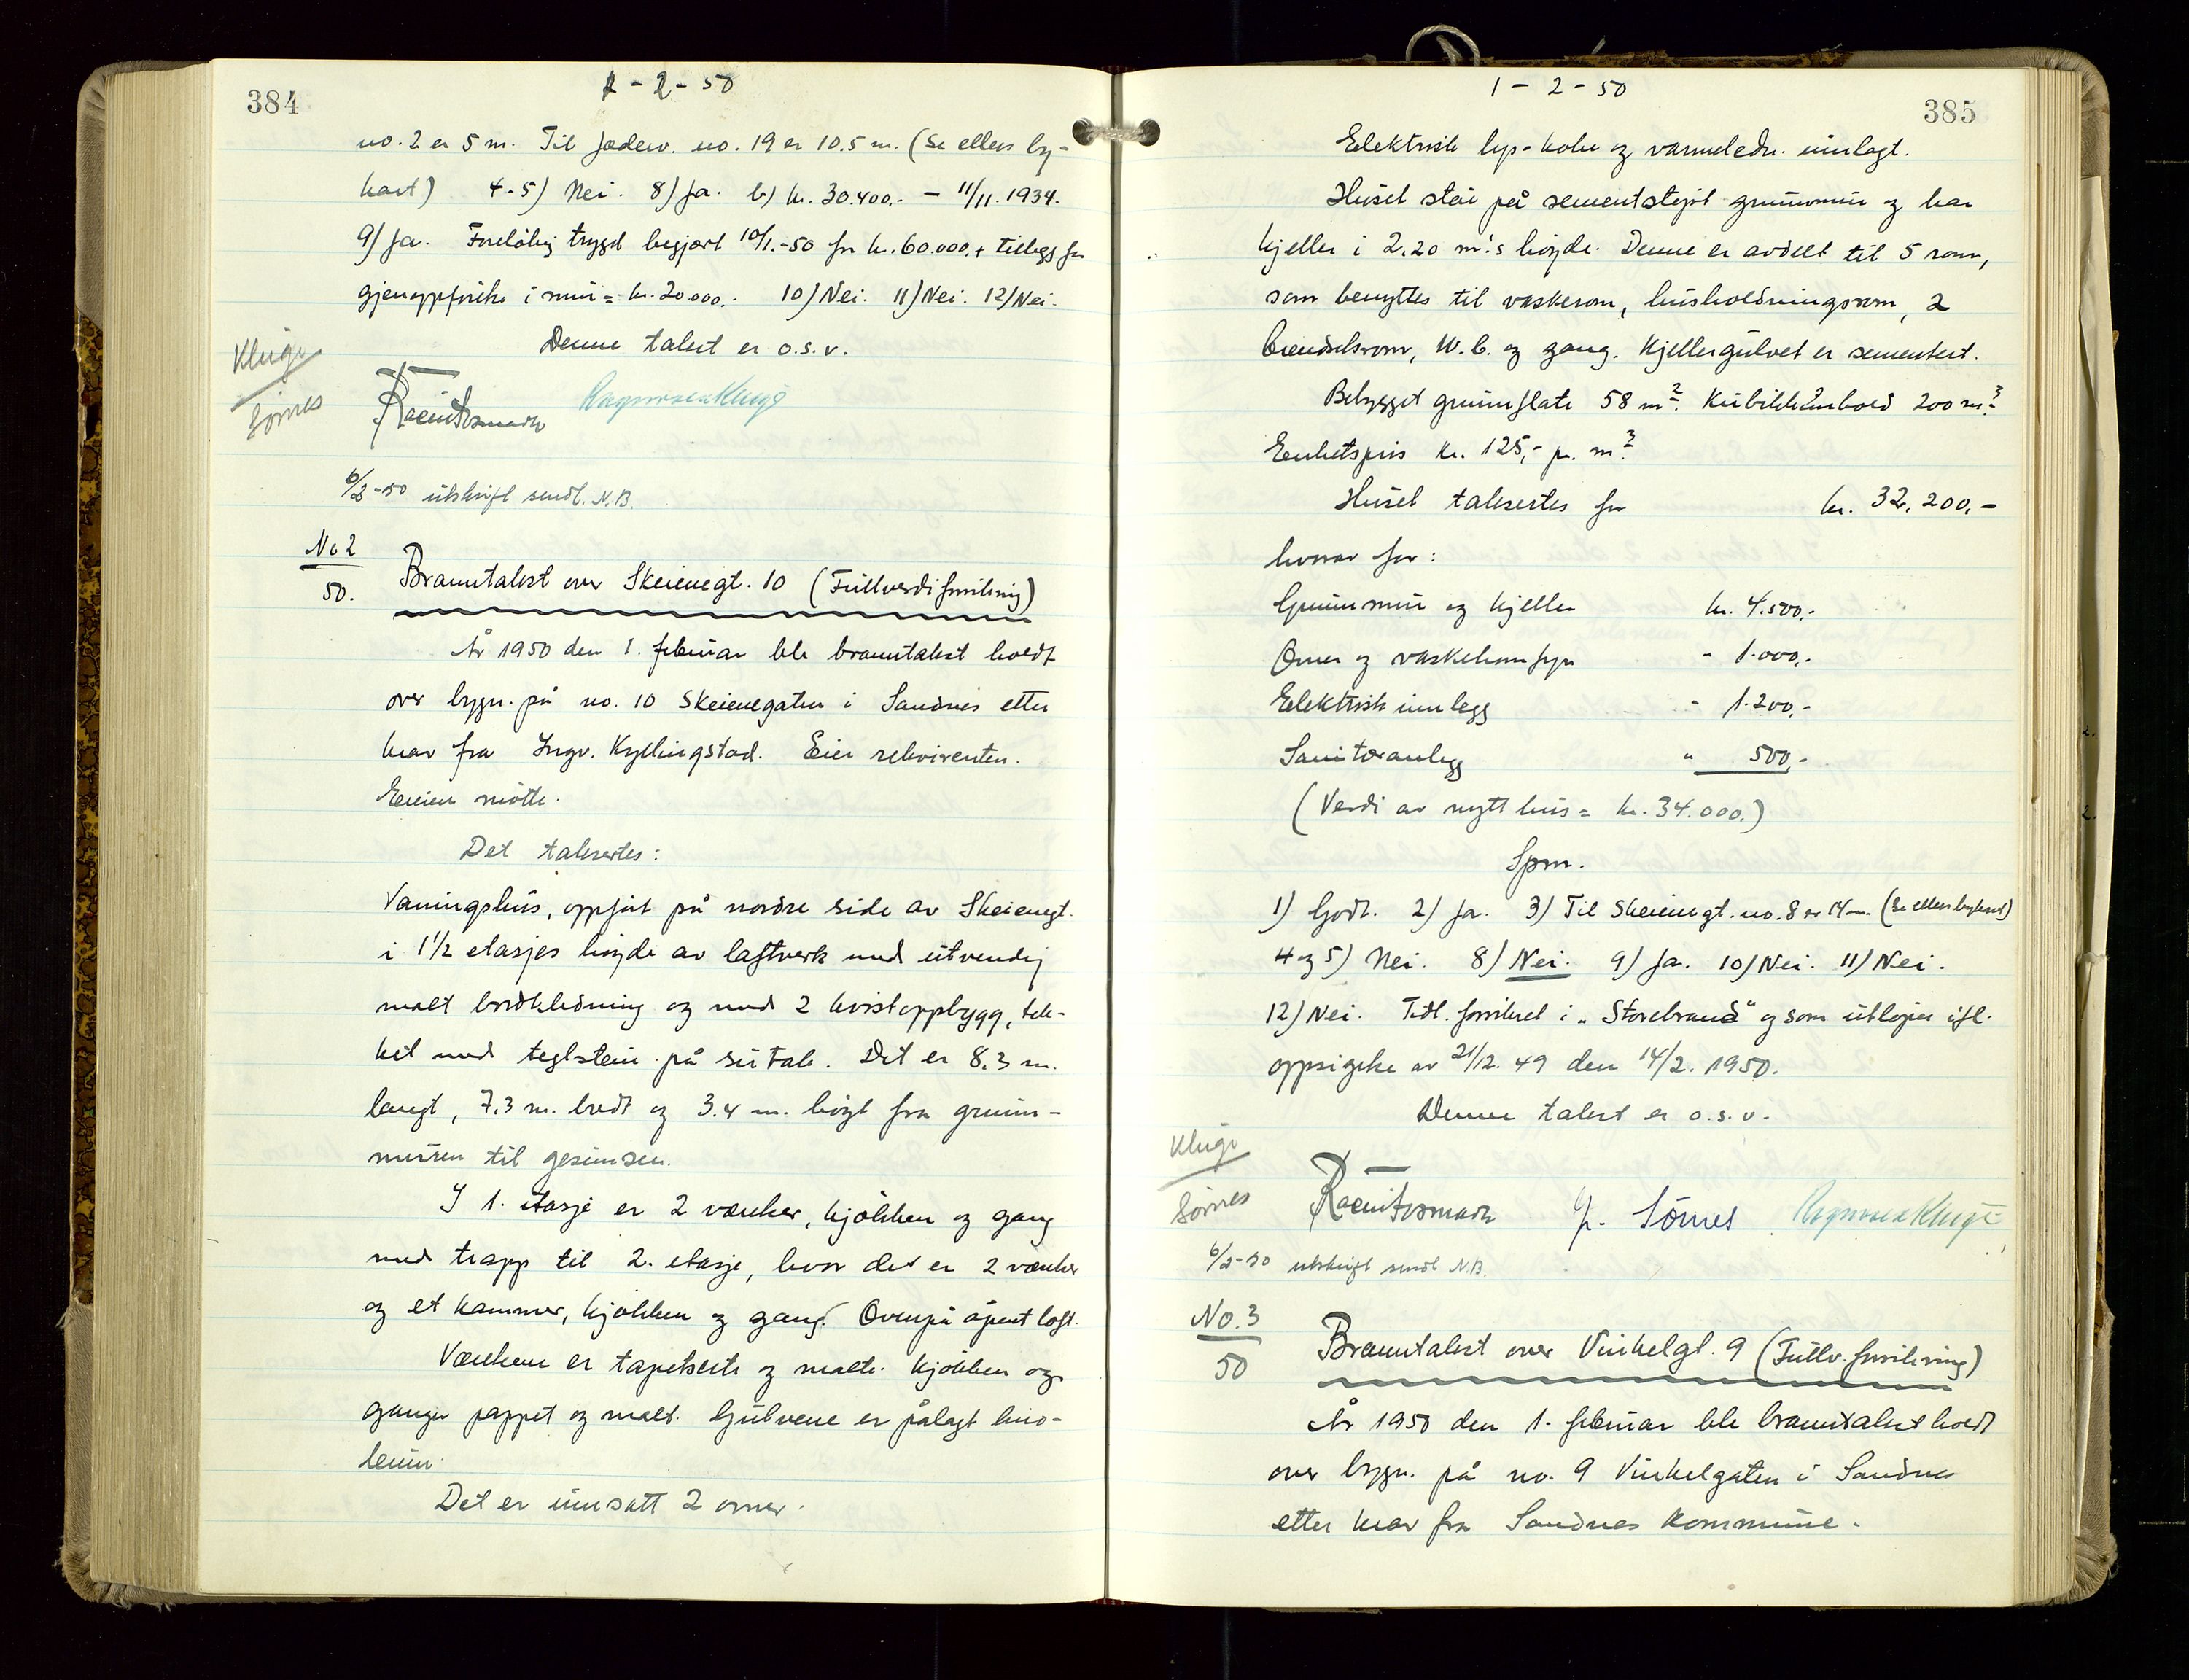 384
1 - 2 - 50
no. 2 er 5 m. Til Jædew. no. 19 er 10.5 m. (Se ellers by-
kart) 4-5) Nei. 8) Ja. b) kr. 30.400.- - 11/11. 1934.
9) Ja. Foreløbig trygd begjært 10/1.-50 for kr. 60.000.+ tillegg for
gjenoppførelse i mur = kr. 20.000.- 10) Nei. 11) Nei. 12) Nei.
Denne takst er o.s.v.
Kluge
Sørnes
Ragnvald Kluge
6/2-50 utskrift sendt. N.B.
No 2
50.
Branntakst over Skeienegt. 10 (Fullverdiforsikring)
År 1950 den 1. februar ble branntakst holdt
over bygn. på no. 10 Skeienegaten i Sandnes etter
krav fra Ingv. Kyllingstad. Eier rekvirenten.
Eieren møtte.
Det taksertes:
Vaningshus, oppført på nordre side av Skeienegt.
i 1 1/2 etasjes høyde av laftverk med utvendig
malt bordkledning og med 2 kvistoppbygg, tek-
ket med teglstein på sutak. Det er 8.3 m.
langt, 7.3 m. bredt og 3.4 m. høgt fra grunn-
muren til gesimsen.
I 1. etasje er 2 værelser, kjøkken og gang
med trapp til 2. etasje, hvor det er 2 værelser
og et kammer, kjøkken og gang. Ovenpå åpent loft.
Værelsene er tapetserte og malte. Kjøkken og
ganger pappet og malt. Gulvene er pålagt lino-
leum.
Det er innsatt 2 ovner.
385
1 - 2 - 50
Elektrisk lys- koke og varmeledn. innlagt.
Huset står på sementstøpt grunnmur og har
kjeller i 2.20 m's høyde. Denne er avdelt til 5 rom,
som benyttes til vaskerom, husholdningsrom, 2
brendselsrom, W.C. og gang. Kjellergulvet er sementert.
Bebygget grunnflate 58 m². Kubikkinnhold 200 m³.
Enhetspris kr. 125,- pr. m³.
Huset takseres for kr. 32.200.-
hvorav for:
Grunnmur og kjeller kr. 4.500,-
Ovner og vaskekomfyr " 1.000,-
Elektrisk innlegg " 1.200,-
Sanitæranlegg " 500,-
(Verdi av nytt hus = kr. 34.000.)
Spm.
1) Godt. 2) Ja. 3) Til Skeienegt. no. 8 er 14 m. (Se ellers bykart)
4 og 5) Nei. 8) Nei. 9) Ja. 10) Nei. 11) Nei.
12) Nei. Tidl. forsikret i "Storebrand" og som utløper ifl.
oppsigelse av 21/12. 49 den 14/2. 1950.
Denne takst er o.s.v.
Kluge
Sørnes
P. Sørnes Ragnvald Kluge
6/2-50 utskrift sendt N.B.
No. 3
50
Branntakst over Vinkelgt. 9 (Fullv. forsikring)
År 1950 den 1. februar ble branntakst holdt
over bygn. på no. 9 Vinkelgaten i Sandnes
etter krav fra Sandnes kommune.